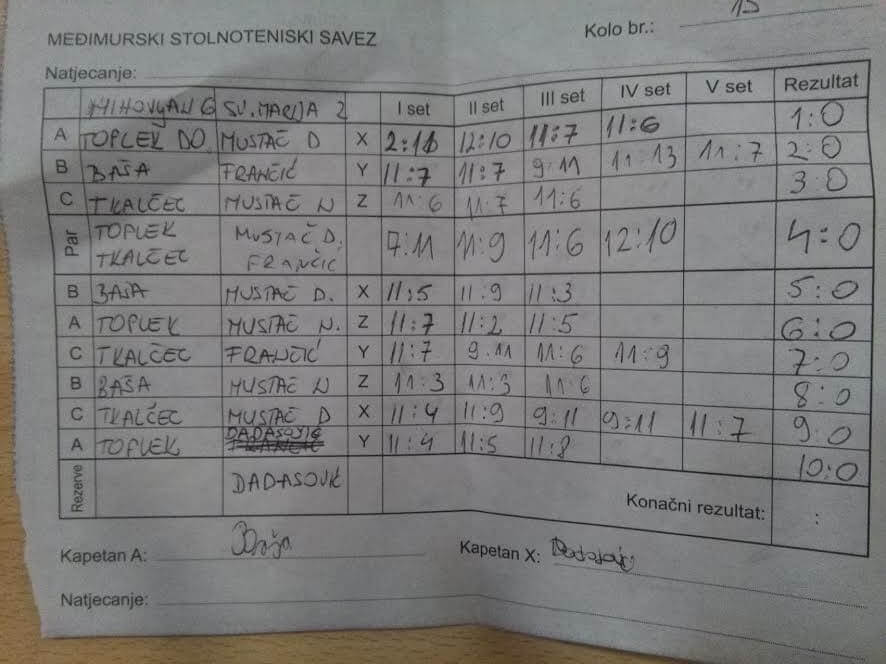 MEĐIMURSKI STOLNOTENISKI SAVEZ
Kolo br.: 15
Natjecanje:
MIHOVLJAN 6 SV. MARIJA 2 I set II set III set IV set V set Rezultat
A TOPLEK DO. MUSTAČ D X 2:11 12:10 11:7 11:6 1:0
B BAŠA FRANČIĆ Y 11:7 11:7 9:11 11:13 11:7 2:0
C TKALČEC MUSTAČ N Z 11:6 11:7 11:6 3:0
Par TOPLEK MUSTAČ D. 7:11 11:9 11:6 12:10 4:0
TKALČEC FRANČIĆ
B BAŠA MUSTAČ D. X 11:5 11:9 11:3 5:0
A TOPLEK MUSTAČ N. Z 11:7 11:2 11:5 6:0
C TKALČEC FRANČIĆ Y 11:7 9:11 11:6 11:9 7:0
B BAŠA MUSTAČ N Z 11:3 11:3 11:6 8:0
C TKALČEC MUSTAČ D X 11:4 11:9 9:11 9:11 11:7 9:0
A TOPLEK DADASOVIĆ Y 11:4 11:5 11:8 10:0
Rezerve DADASOVIĆ
Konačni rezultat: :
Kapetan A: Baša Kapetan X:
Natjecanje: